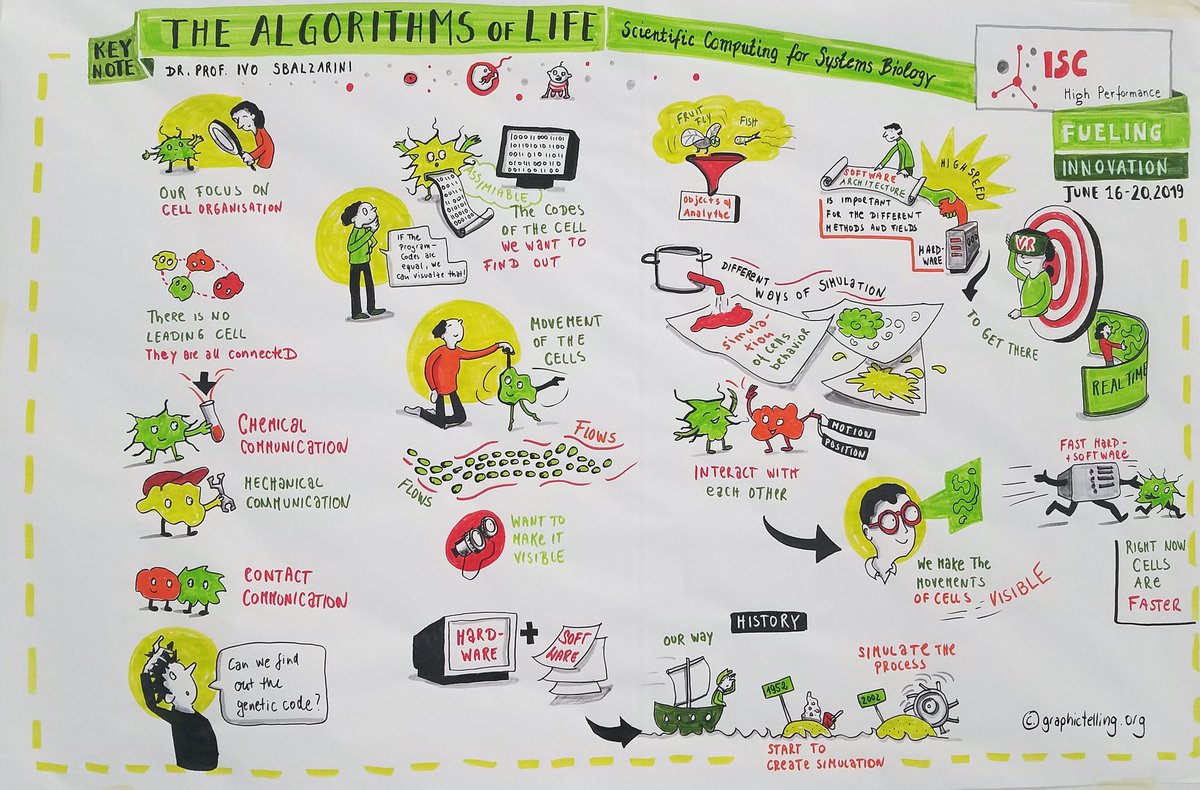 KEY
NOTE
THE ALGORITHMS OF LIFE
Scientific Computing for Systems Biology
DR. PROF. IVO SBALZARINI
ISC
High Performance
FUELING
INNOVATION
JUNE 16-20.2019
OUR FOCUS ON
CELL ORGANISATION
THERE IS NO
LEADING CELL
They are all connected
CHEMICAL
COMMUNICATION
MECHANICAL
COMMUNICATION
CONTACT
COMMUNICATION
Can we find
out the
genetic code?
ASSIMIABLE
THE CODES
OF THE CELL
WE WANT TO
FIND OUT
IF THE
PROGRAM-
CODES ARE
equal, we
can visualize that!
MOVEMENT
OF THE
CELLS
FLOWS
FLOWS
WANT TO
MAKE IT
VISIBLE
HARD-
WARE
+
SOFT
WARE
FRUIT
FLY
FISH
Objects of
Analythe
SOFTWARE
ARCHITECTURE
IS IMPORTANT
FOR THE DIFFERENT
METHODS AND FIELDS
HIGH SPEED
HARD-
WARE
VR
TO GET THERE
REALTIME
DIFFERENT
WAYS OF SIMULATION
Simula-
tion
of cells
behavior
INTERACT WITH
each OTHER
MOTION
POSITION
WE MAKE THE
MOVEMENTS
OF CELLS - VISIBLE
FAST HARD-
+SOFTWARE
RIGHT NOW
CELLS
ARE
FASTER
HISTORY
OUR WAY
1952
START TO
CREATE SIMULATION
2002
SIMULATE THE
PROCESS
©graphictelling.org